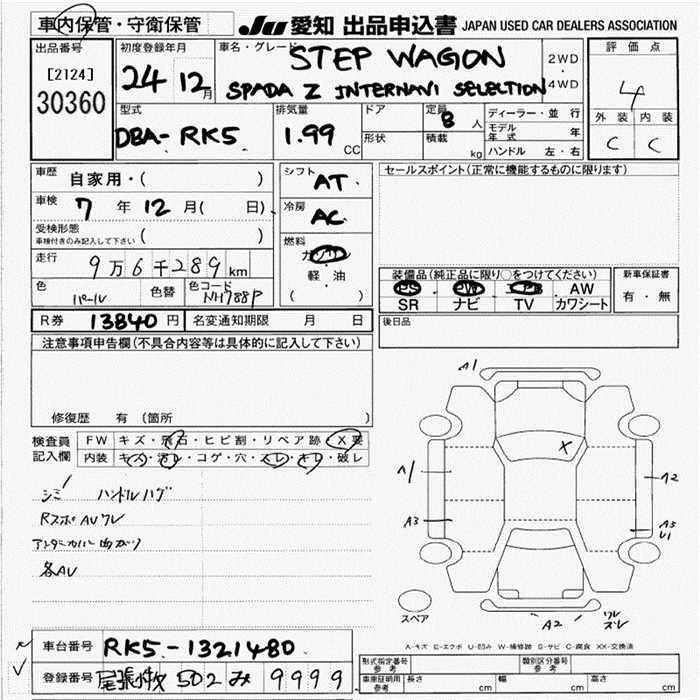 車内保管・守衛保管
JU 愛知 出品申込書 JAPAN USED CAR DEALERS ASSOCIATION
出品番号
[2124]
30360
初度登録年月
24 12月
車名・グレード
STEP WAGON
SPADA Z INTERNAVI SELECTION
2WD
・
4WD
評価点
4
外装 内装
C C
型式
DBA-RK5
排気量
1.99 CC
ドア
形状
定員 8 人
積載 kg
ディーラー・並行
モデル年式 年
ハンドル 左・右
車歴 自家用・( )
車検 7 年 12 月( 日)
受検形態
車検付きのみ記入して下さい ( )
走行 9万6千289km
色 パール 色替 色コード NH788P
シフト AT
冷房 AC
燃料
ガソリン
軽・油
( )
セールスポイント(正常に機能するものに限ります)
装備品(純正品に限り○をつけてください)
PS PW エアB AW
SR ナビ TV カワシート
新車保証書
有・無
R券 13840 円 名変通知期限 月 日
後日品
注意事項申告欄(不具合内容等は具体的に記入して下さい)
修復歴 有 (箇所 )
検査員
記入欄
FW キズ・飛石・ヒビ割・リペア跡・X要
内装 キズ・汚レ・コゲ・穴・スレ・キレ・破レ
シミ ハンドルハゲ
RスポAVワレ
アンダーカバー曲がり
各AU
A1
X
A1
A2
A3
A3
U1
A2
ワレ
ズレ
スペア
A-キズ E-エクボ U-凹み W-補修跡 S-サビ C-腐食 XX-交換済
車台番号 RK5-1321480
登録番号 尾張小牧 502 み 9999
形式指定番号
参考
類別区分番号
参考
車庫証明用
参考
長さ cm 幅 cm 高さ cm